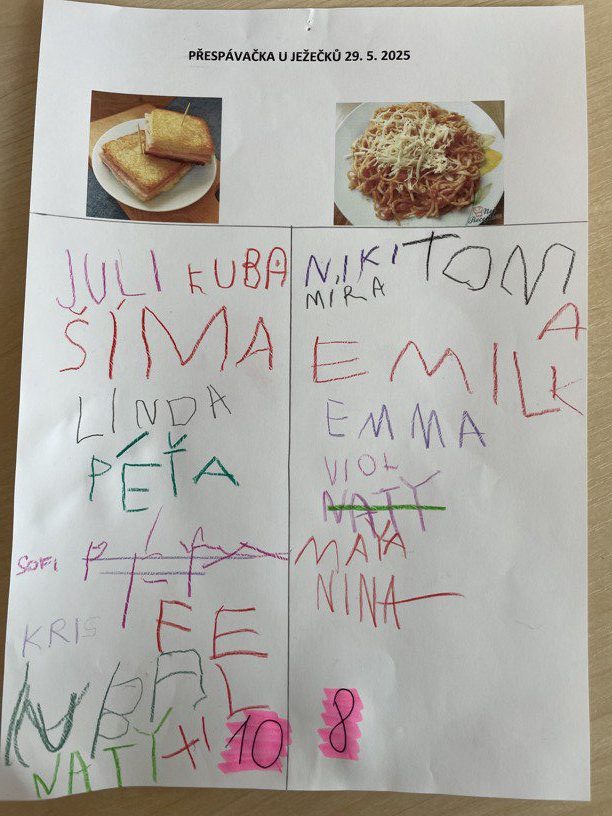 PŘESPÁVAČKA U JEŽEČKŮ 29. 5. 2025
JULI KUBA
ŠÍMA
LINDA
PÉŤA
SOFI
KRIS
NATY +1 10
NIKI TOM
MIRA
EMILKA
EMMA
VIOL
NATY
NINA
8